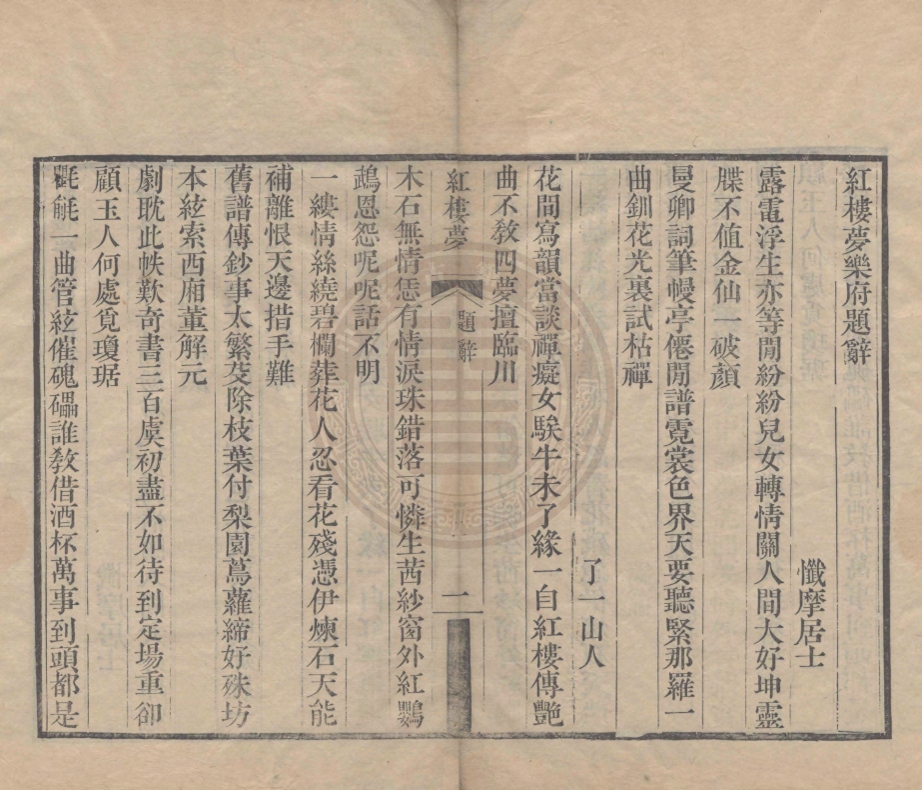 紅樓夢樂府題辭
懺摩居士
露電浮生亦等閒紛紛兒女轉情關人間大好坤靈
牒不值金仙一破顏
曼卿詞筆幔亭僊閒譜霓裳色界天要聽緊那羅一
曲釧花光裏試枯禪
了一山人
花間寫韻當談禪癡女騃牛未了緣一自紅樓傳艷
曲不教四夢擅臨川
紅樓夢
題辭
一
木石無情恁有情淚珠錯落可憐生茜紗窗外紅鸚
鵡恩怨呢呢話不明
一縷情絲繞碧欄葬花人忍看花殘憑伊煉石天能
補離恨天邊措手難
舊譜傳鈔事太繁芟除枝葉付梨園蔦蘿締好硃坊
本絃索西廂董解元
劇耽此帙歎奇書三百虞初盡不如待到定場重卻
顧玉人何處覓瓊琚
氍毹一曲管絃催磈礧誰教借酒杯萬事到頭都是